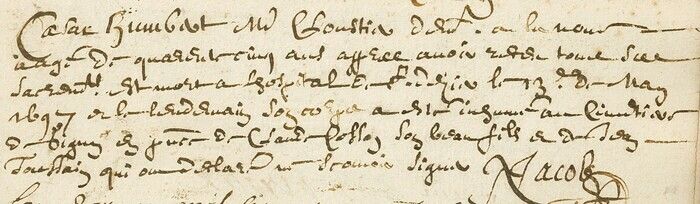 Cesar Humbert Mr Cloustier demt a la neuve
aagé de quarente cinq ans appres avoir receu tous ses
sacremts est mort a l'hospital de St dizier le 13e de May
1697 et le lendemain son corps a esté inhumé au Cimetiere
de en pnce de Claude son beau fils et de Jean
Toussain qui ont declaré ne scavoir signer Jacob